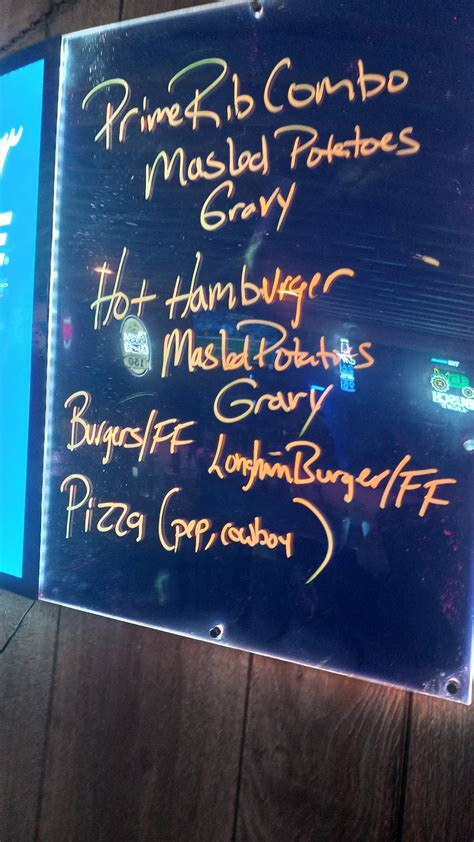 Prime Rib Combo
Masled Potatoes
Gravy
Hot Hamburger
Masled Potatoes
Gravy
Burgers/FF
Longhorn Burger/FF
Pizza (pep, cowboy)
BUSCH